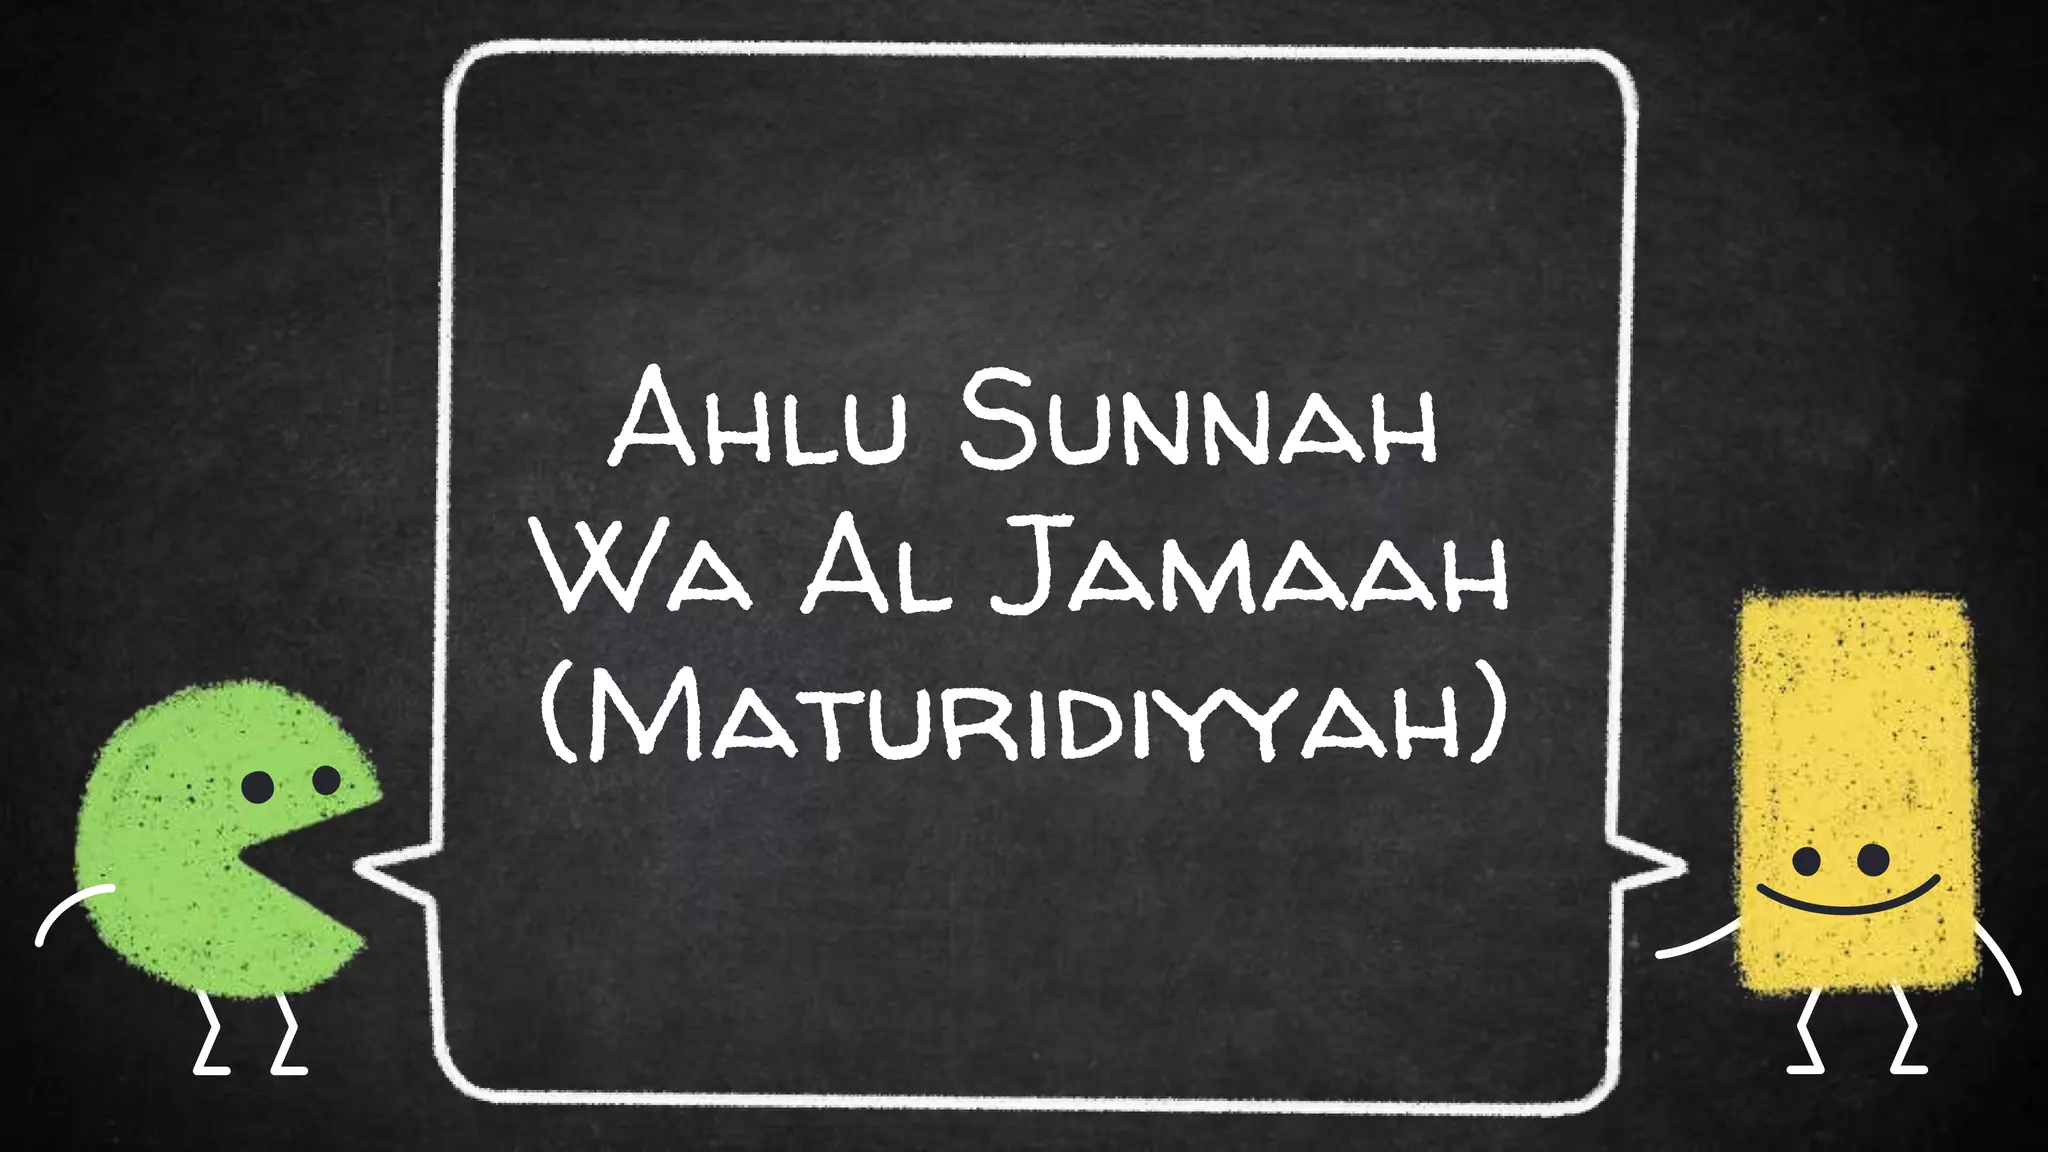 Ahlu Sunnah
Wa Al Jamaah
(Maturidiyyah)